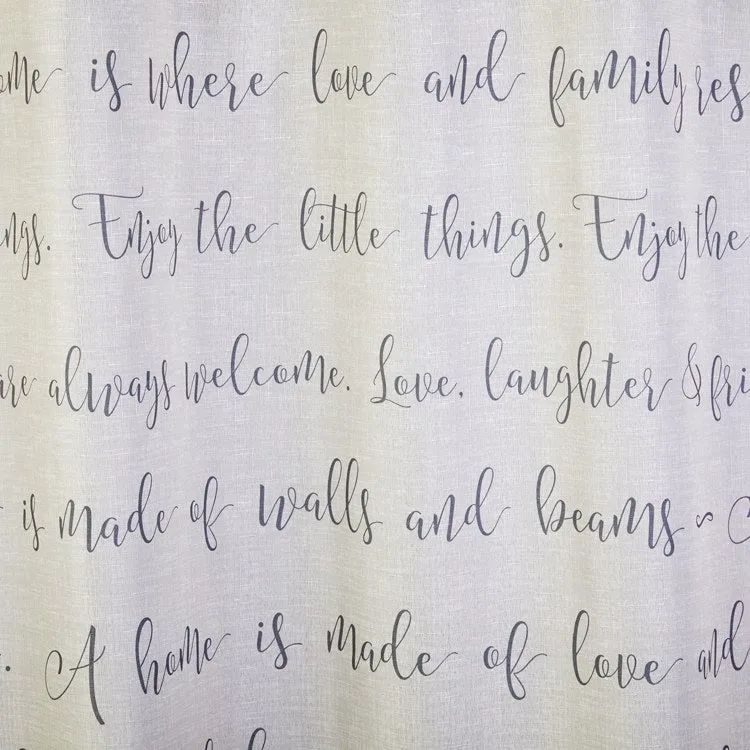 ome is where love and family res
ngs. Enjoy the little things. Enjoy the
are always welcome. Love, laughter & fri
is made of walls and beams ~
. A home is made of love and